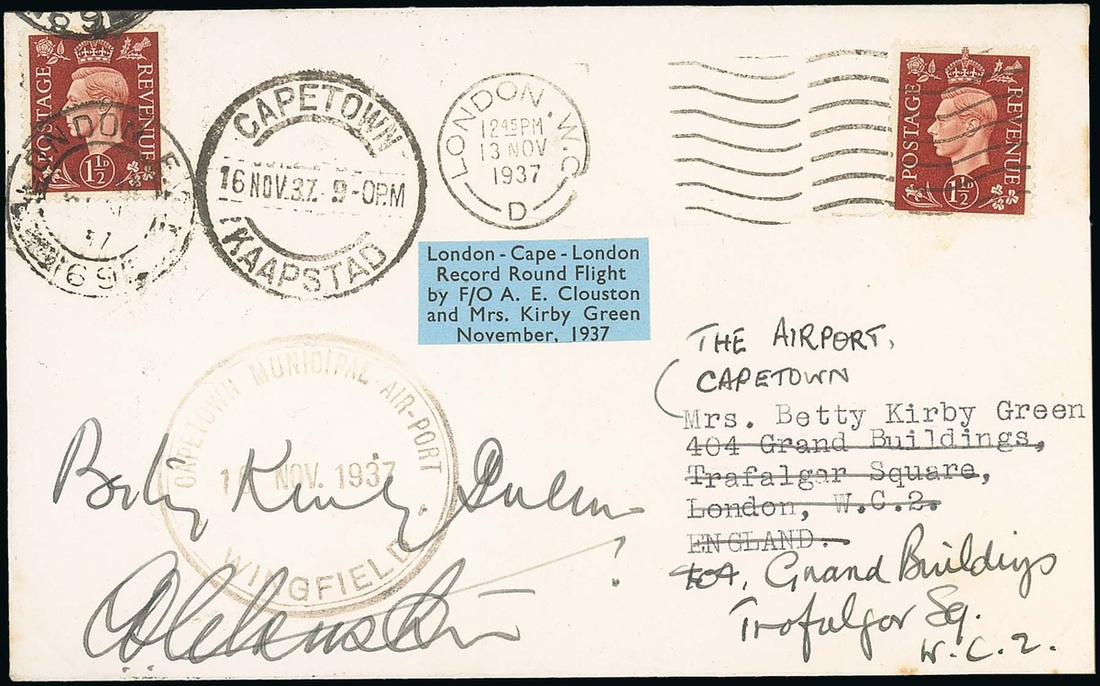 POSTAGE REVENUE
1½D
LONDON
69
CAPETOWN
16 NOV.37. 9-0PM
KAAPSTAD
LONDON. W.C.
12 45 PM
13 NOV
1937
D
POSTAGE REVENUE
1½D
London - Cape - London
Record Round Flight
by F/O A. E. Clouston
and Mrs. Kirby Green
November, 1937
THE AIRPORT,
CAPETOWN
Mrs. Betty Kirby Green
404 Grand Buildings,
Trafalgar Square,
London, W.C.2.
ENGLAND.
404, Grand Buildings
Trafalgar Sq.
W.C.2.
CAPETOWN MUNICIPAL AIR-PORT
NOV. 1937
WINGFIELD
Betty Kirby Green
AEClouston